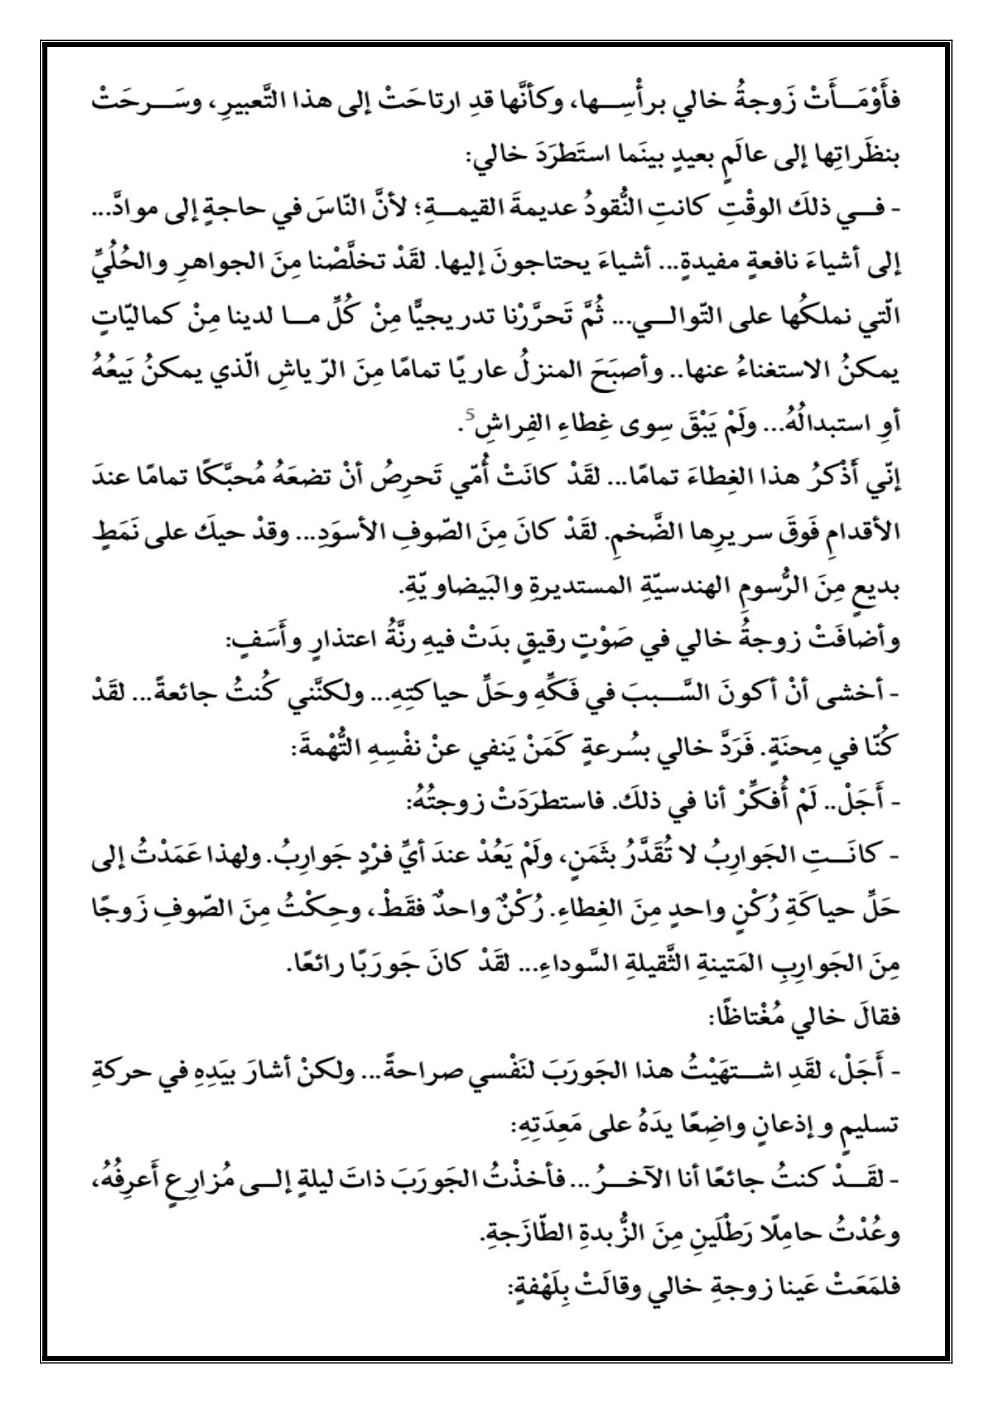 فأَوْمَــأَتْ زَوجةُ خالي برأْسِــها، وكأنَّها قدِ ارتاحَتْ إلى هذا التَّعبيرِ، وسَــرحَتْ
بنظَراتِها إلى عالَمٍ بعيدٍ بينَما استَطرَدَ خالي:
- فــي ذلكَ الوقْتِ كانتِ النُّقودُ عديمةَ القيمــةِ؛ لأنَّ النّاسَ في حاجةٍ إلى موادَّ...
إلى أشياءَ نافعةٍ مفيدةٍ... أشياءَ يحتاجونَ إليها. لقَدْ تخلَّصْنا مِنَ الجواهرِ والحُلُيِّ
الّتي نملكُها على التّوالــي... ثُمَّ تَحرَّرْنا تدريجيًّا مِنْ كُلِّ مــا لدينا مِنْ كماليّاتٍ
يمكنُ الاستغناءُ عنها.. وأصبَحَ المنزلُ عاريًا تمامًا مِنَ الرّياشِ الّذي يمكنُ بَيعُهُ
أوِ استبدالُهُ... ولَمْ يَبْقَ سِوى غِطاءِ الفِراشِ5.
إنّي أَذْكرُ هذا الغِطاءَ تمامًا... لقَدْ كانَتْ أُمّي تَحرِصُ أنْ تضعَهُ مُحبَّكًا تمامًا عندَ
الأقدامِ فَوقَ سريرِها الضَّخمِ. لقَدْ كانَ مِنَ الصّوفِ الأسوَدِ... وقدْ حيكَ على نَمَطٍ
بديعٍ مِنَ الرُّسومِ الهندسيّةِ المستديرةِ والبَيضاويّةِ.
وأضافَتْ زوجةُ خالي في صَوْتٍ رقيقٍ بدَتْ فيهِ رنَّةُ اعتذارٍ وأَسَفٍ:
- أخشى أنْ أكونَ السَّــببَ في فَكِّهِ وحَلِّ حياكتِهِ... ولكنَّني كُنتُ جائعةً... لقَدْ
كُنّا في مِحنَةٍ. فَرَدَّ خالي بسُرعةٍ كَمَنْ يَنفي عنْ نفْسِهِ التُّهْمةَ:
- أَجَلْ.. لَمْ أُفكِّرْ أنا في ذلكَ. فاستطرَدَتْ زوجتُهُ:
- كانَــتِ الجَوارِبُ لا تُقَدَّرُ بثَمَنٍ، ولَمْ يَعُدْ عندَ أيِّ فرْدٍ جَوارِبُ. ولهذا عَمَدْتُ إلى
حَلِّ حياكَةِ رُكْنٍ واحدٍ مِنَ الغِطاءِ. رُكْنٌ واحدٌ فقَطْ، وحِكْتُ مِنَ الصّوفِ زَوجًا
مِنَ الجَوارِبِ المَتينةِ الثَّقيلةِ السَّوداءِ... لقَدْ كانَ جَورَبًا رائعًا.
فقالَ خالي مُغْتاظًا:
- أَجَلْ، لقَدِ اشــتهَيْتُ هذا الجَورَبَ لنَفْسي صراحةً... ولكنْ أشارَ بيَدِهِ في حركةِ
تسليمٍ وإذعانٍ واضِعًا يدَهُ على مَعِدَتِهِ:
- لقَــدْ كنتُ جائعًا أنا الآخــرُ... فأخذْتُ الجَورَبَ ذاتَ ليلةٍ إلــى مُزارِعٍ أَعرِفُهُ،
وعُدْتُ حامِلًا رَطْلَينِ مِنَ الزُّبدةِ الطّازَجةِ.
فلمَعَتْ عَينا زوجةِ خالي وقالَتْ بِلَهْفةٍ: